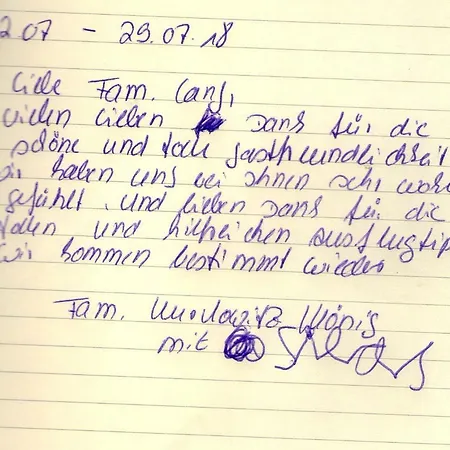 2.07 - 29.07.18
Liebe Fam.
vielen lieben Dank für die
schöne und tolle Gastfreundlichkeit
wir haben uns bei Ihnen sehr wohl
gefühlt. und lieben Dank für die
tollen und hilfreichen Ausflugtip
wir kommen bestimmt wieder.
Fam.
mit